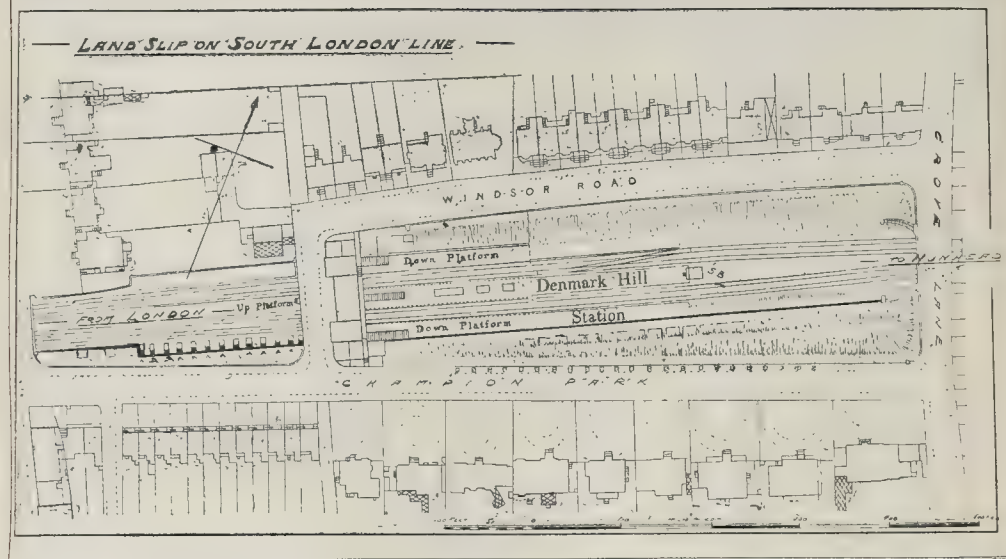 LAND SLIP ON SOUTH LONDON LINE.
WINDSOR ROAD
GROVE LANE
Down Platform
TO NUNHEAD
S.B
Denmark Hill
FROM LONDON
Up Platform
Station
Down Platform
CHAMPION PARK